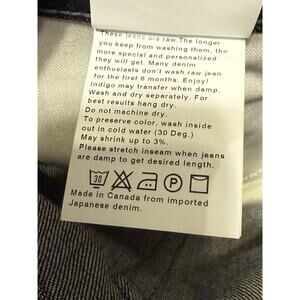 These jeans are raw.The longer
you keep from washing them, the
more special and personalized
they will get. Many denim
enthusiasts don't wash raw jean
for the first 6 months. Exposed
Indigo may transfer when damp.
Wash and dry separately. For
best results hang dry.
Do not machine dry.
To preserve color, wash inside
out in cold water (30 Deg.)
May shrink up to 3%.
Please stretch inseam when jeans
are damp to get desired length.
30
P
Made in Canada from imported
Japanese denim.